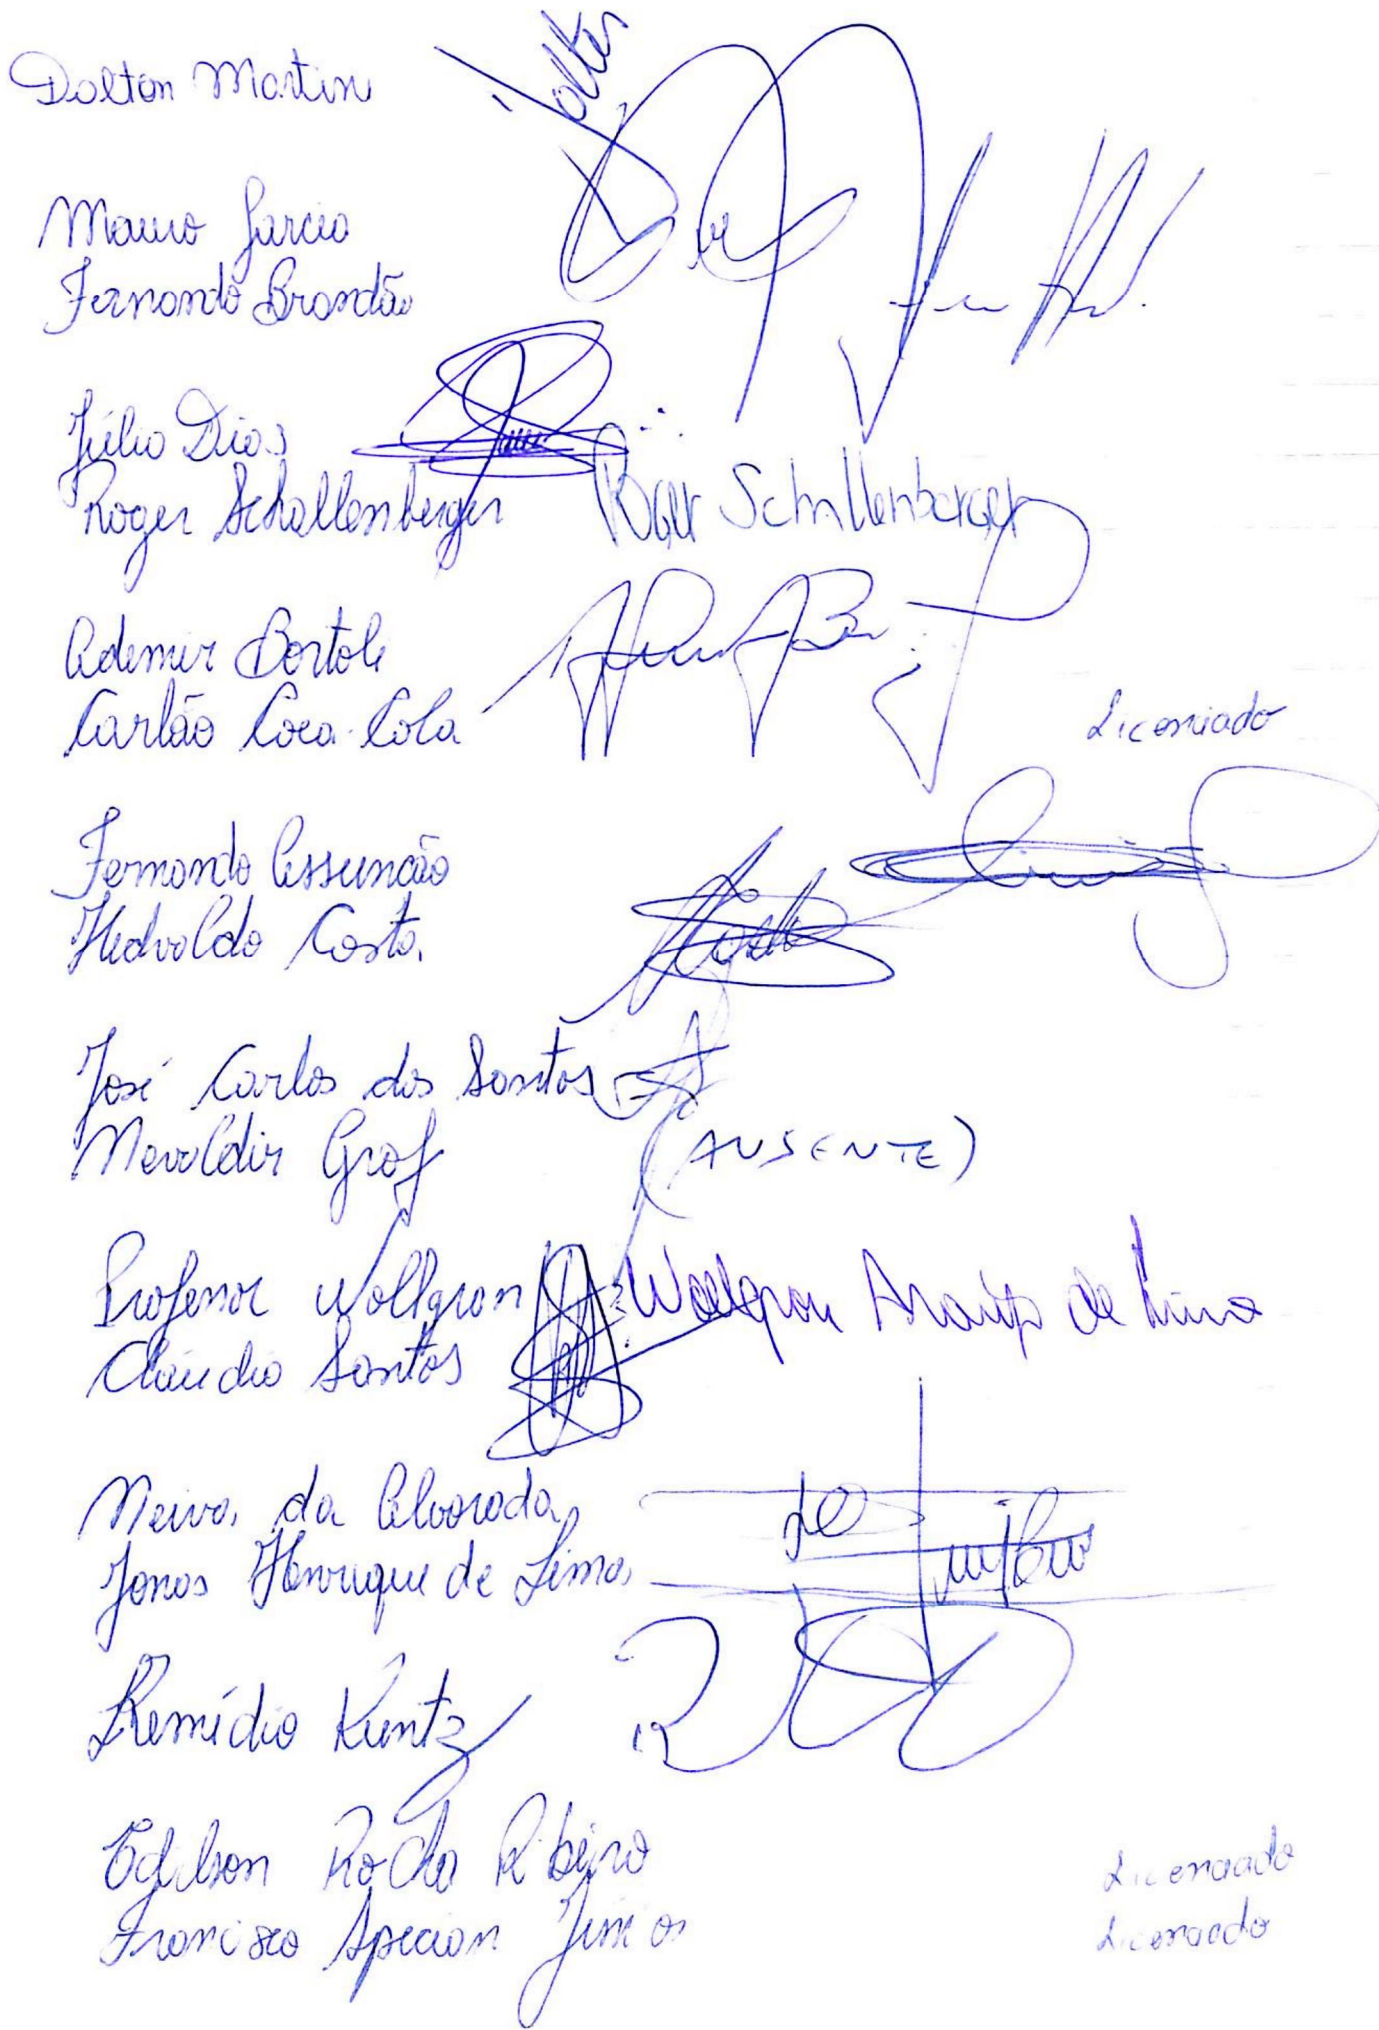 Dalton Martini
Dalton
Mauro Garcia
Fernando Brandão
Júlio Dias
Roger Schallenberger Roger Schallenberger
Ademir Bortoli
Carlão Coca-Cola Licenciado
Fernando Assunção
Hedvaldo Costa
José Carlos dos Santos
Nevaldir Graf (AUSENTE)
Professor Wollgran Wollgran Araújo de Lima
Cláudio Santos
Neiva da Alvorada
Jonas Henrique de Lima
Remídio Kuntz
Edilson Rocha Ribeiro Licenciado
Francisco Specian Junior Licenciado